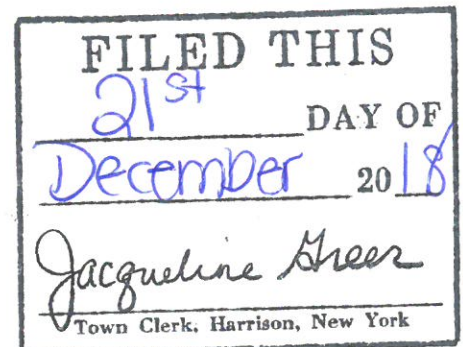 FILED THIS
21st
DAY OF
December 2018
Jacqueline Greer
Town Clerk, Harrison, New York